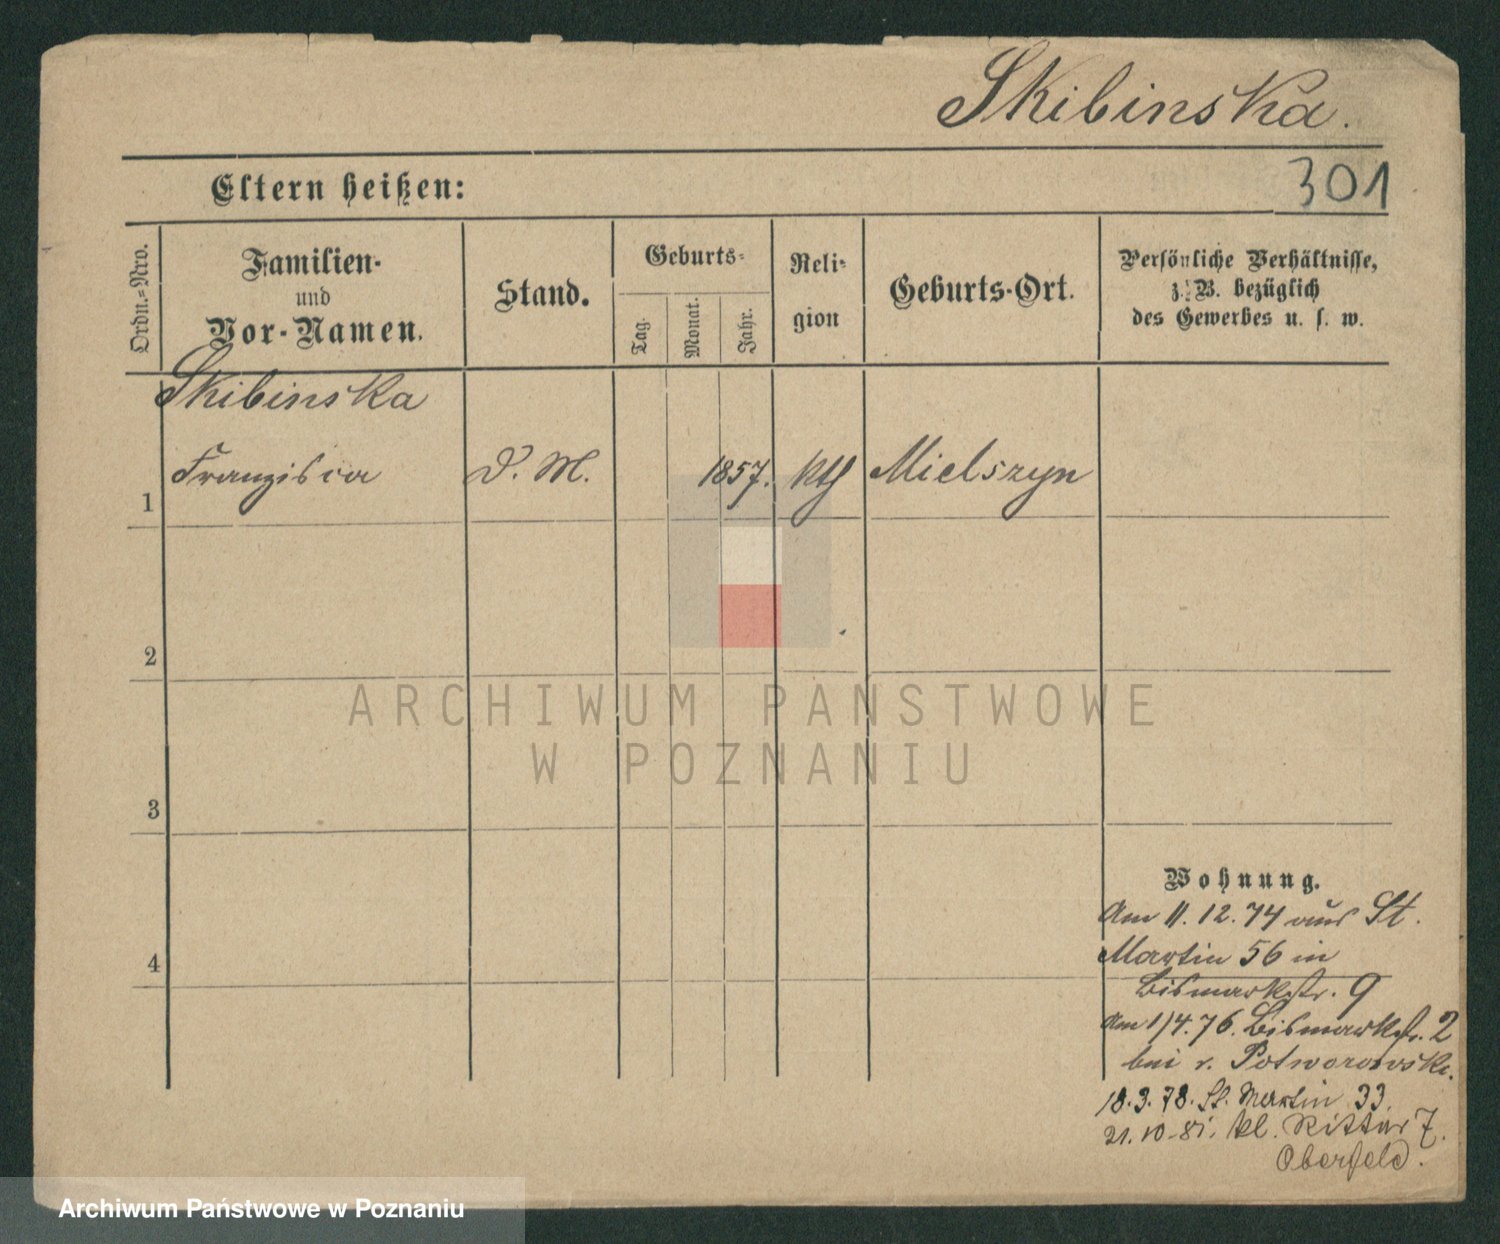 Skibinska.
301
Eltern heißen:
Ordn.=Nro.
Familien-
und
Vor-Namen.
Stand.
Geburts-
Tag.
Monat.
Jahr.
Reli-
gion
Geburts-Ort.
Persönliche Verhältnisse,
z. B. bezüglich
des Gewerbes u. s. w.
Skibinska
1 Franzisca D. M. 1857. kth Mielszyn
2
ARCHIWUM PAŃSTWOWE
W POZNANIU
3
Wohnung.
Am 11.12.74 aus St.
Martin 56 in
4
Bismarkstr. 9
Am 1/4.76. Bismarkstr. 2
bei v. Potworowski.
18.3.78. St. Martin 33.
21.10.81. kl. Ritter 7.
Oberfeld.
Archiwum Państwowe w Poznaniu